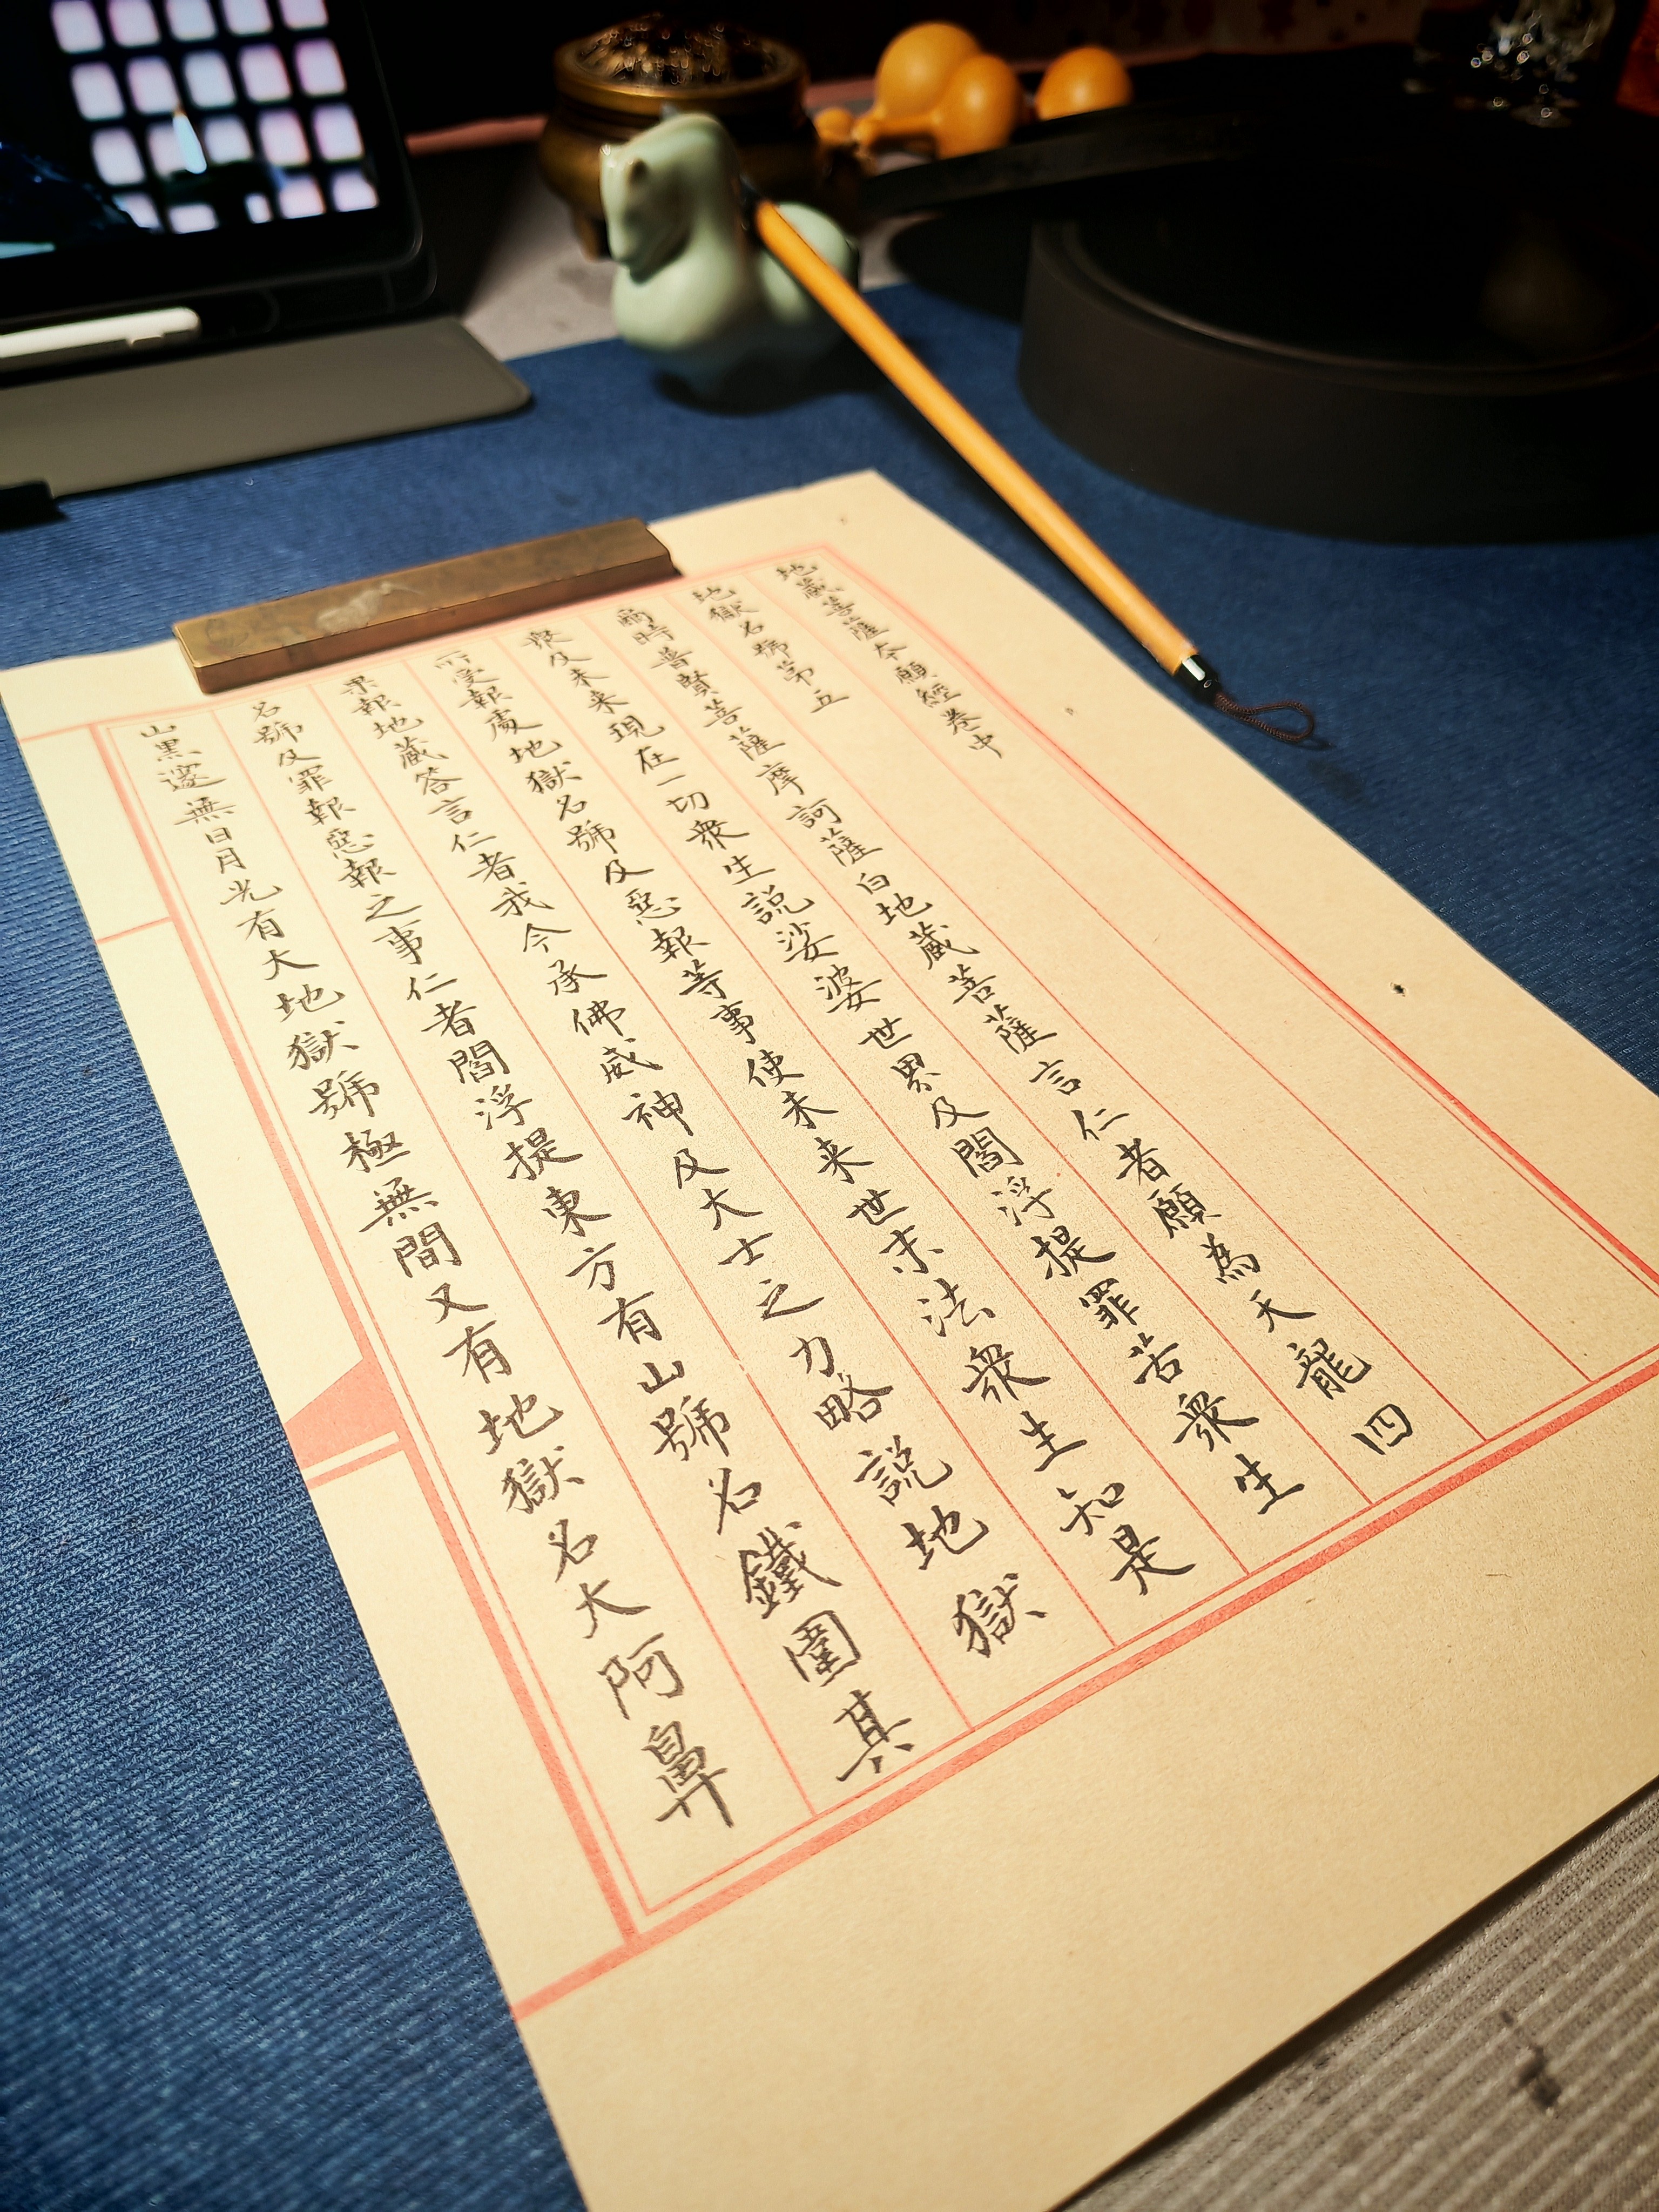 地藏菩薩本願經卷中
地獄名號第五
爾時普賢菩薩摩訶薩白地藏菩薩言仁者願為天龍四
衆及未来現在一切衆生説娑婆世界及閻浮提罪苦衆生
所受報處地獄名號及惡報等事使未来世末法衆生知是
果報地藏答言仁者我今承佛威神及大士之力略説地獄
名號及罪報惡報之事仁者閻浮提東方有山號名鐵圍其
山黑邃無日月光有大地獄號極無間又有地獄名大阿鼻